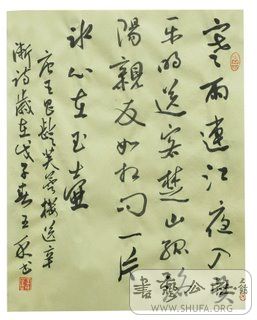 寒雨連江夜入吳
平明送客楚山孤洛
陽親友如相問一片
冰心在玉壺
唐王昌齡芙蓉樓送辛
漸詩歲在戊子春王書
WWW.SHUFA.ORG